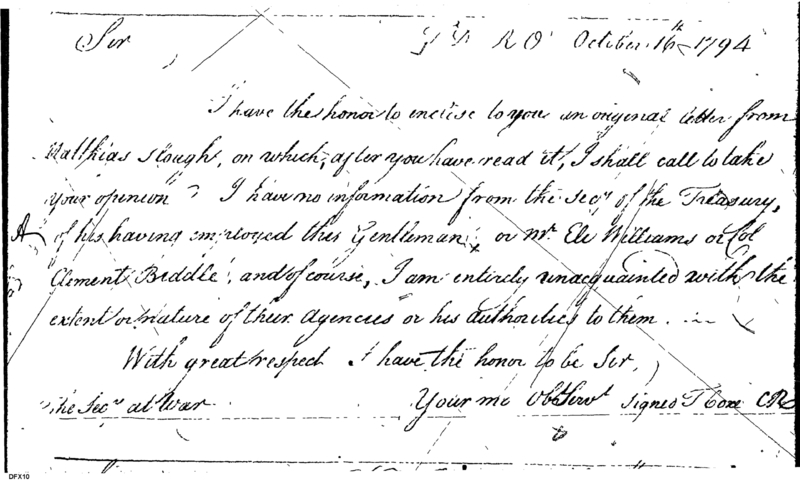 Sir T D R O October 16th 1794
I have the honor to enclose to you an original letter from
Matthias Slough, on which, after you have read it, I shall call to take
your openion I have no information from the Secy of the Treasury,
A of his having employed this Gentleman, x or Mr. Eli Williams or Col
Clement Biddle, and of course, I am entirely unacquainted with the
extent or nature of their agencies or his authorities to them.
With great respect I have the honor to be Sir,
The Secy at War Your mo Obt Servt signed T Coxe CR
DFX10